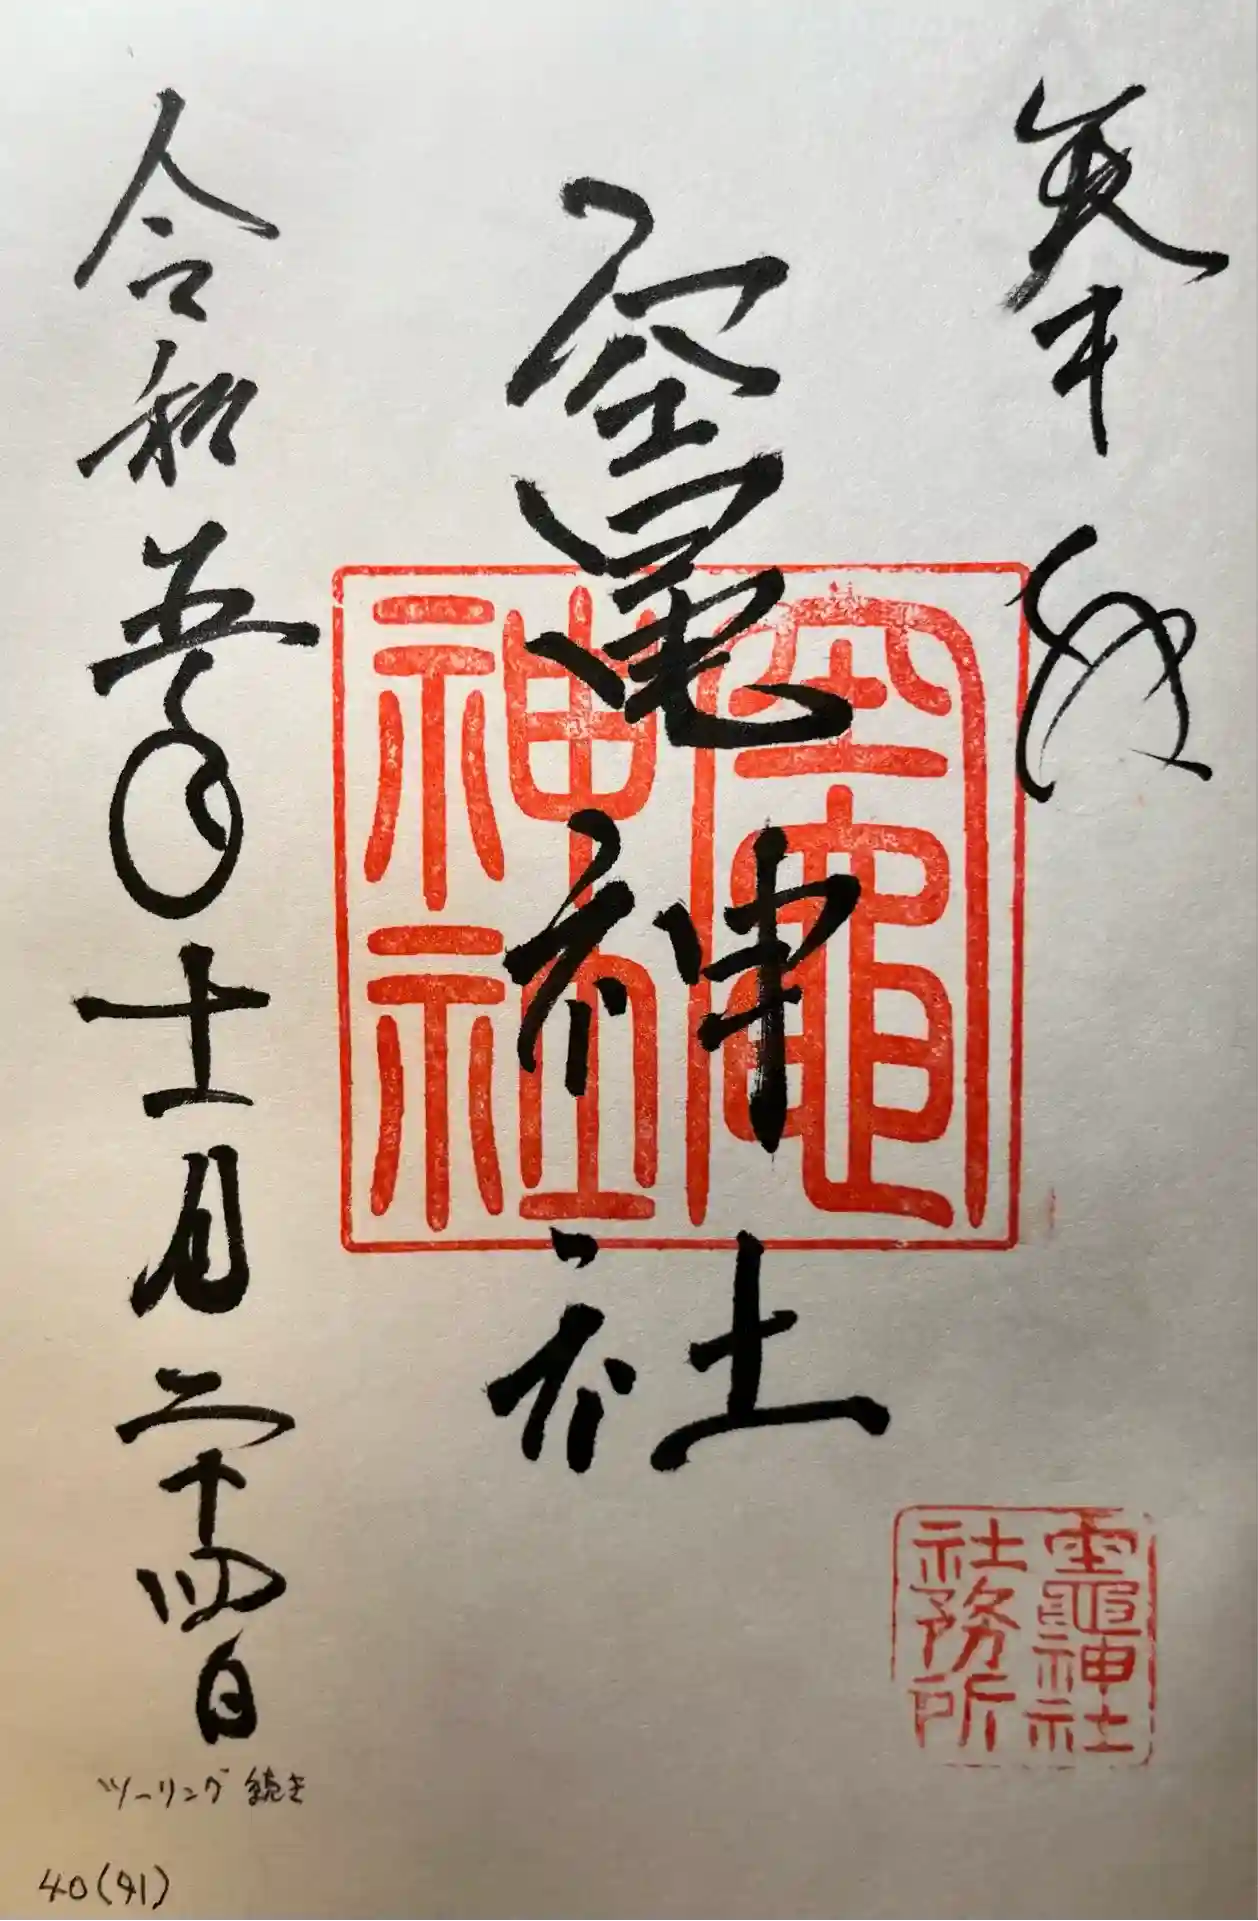 奉
竈神社
竈神社
竈神社
社務所
令和五年十一月二十四日
ツーリング続き
40(41)